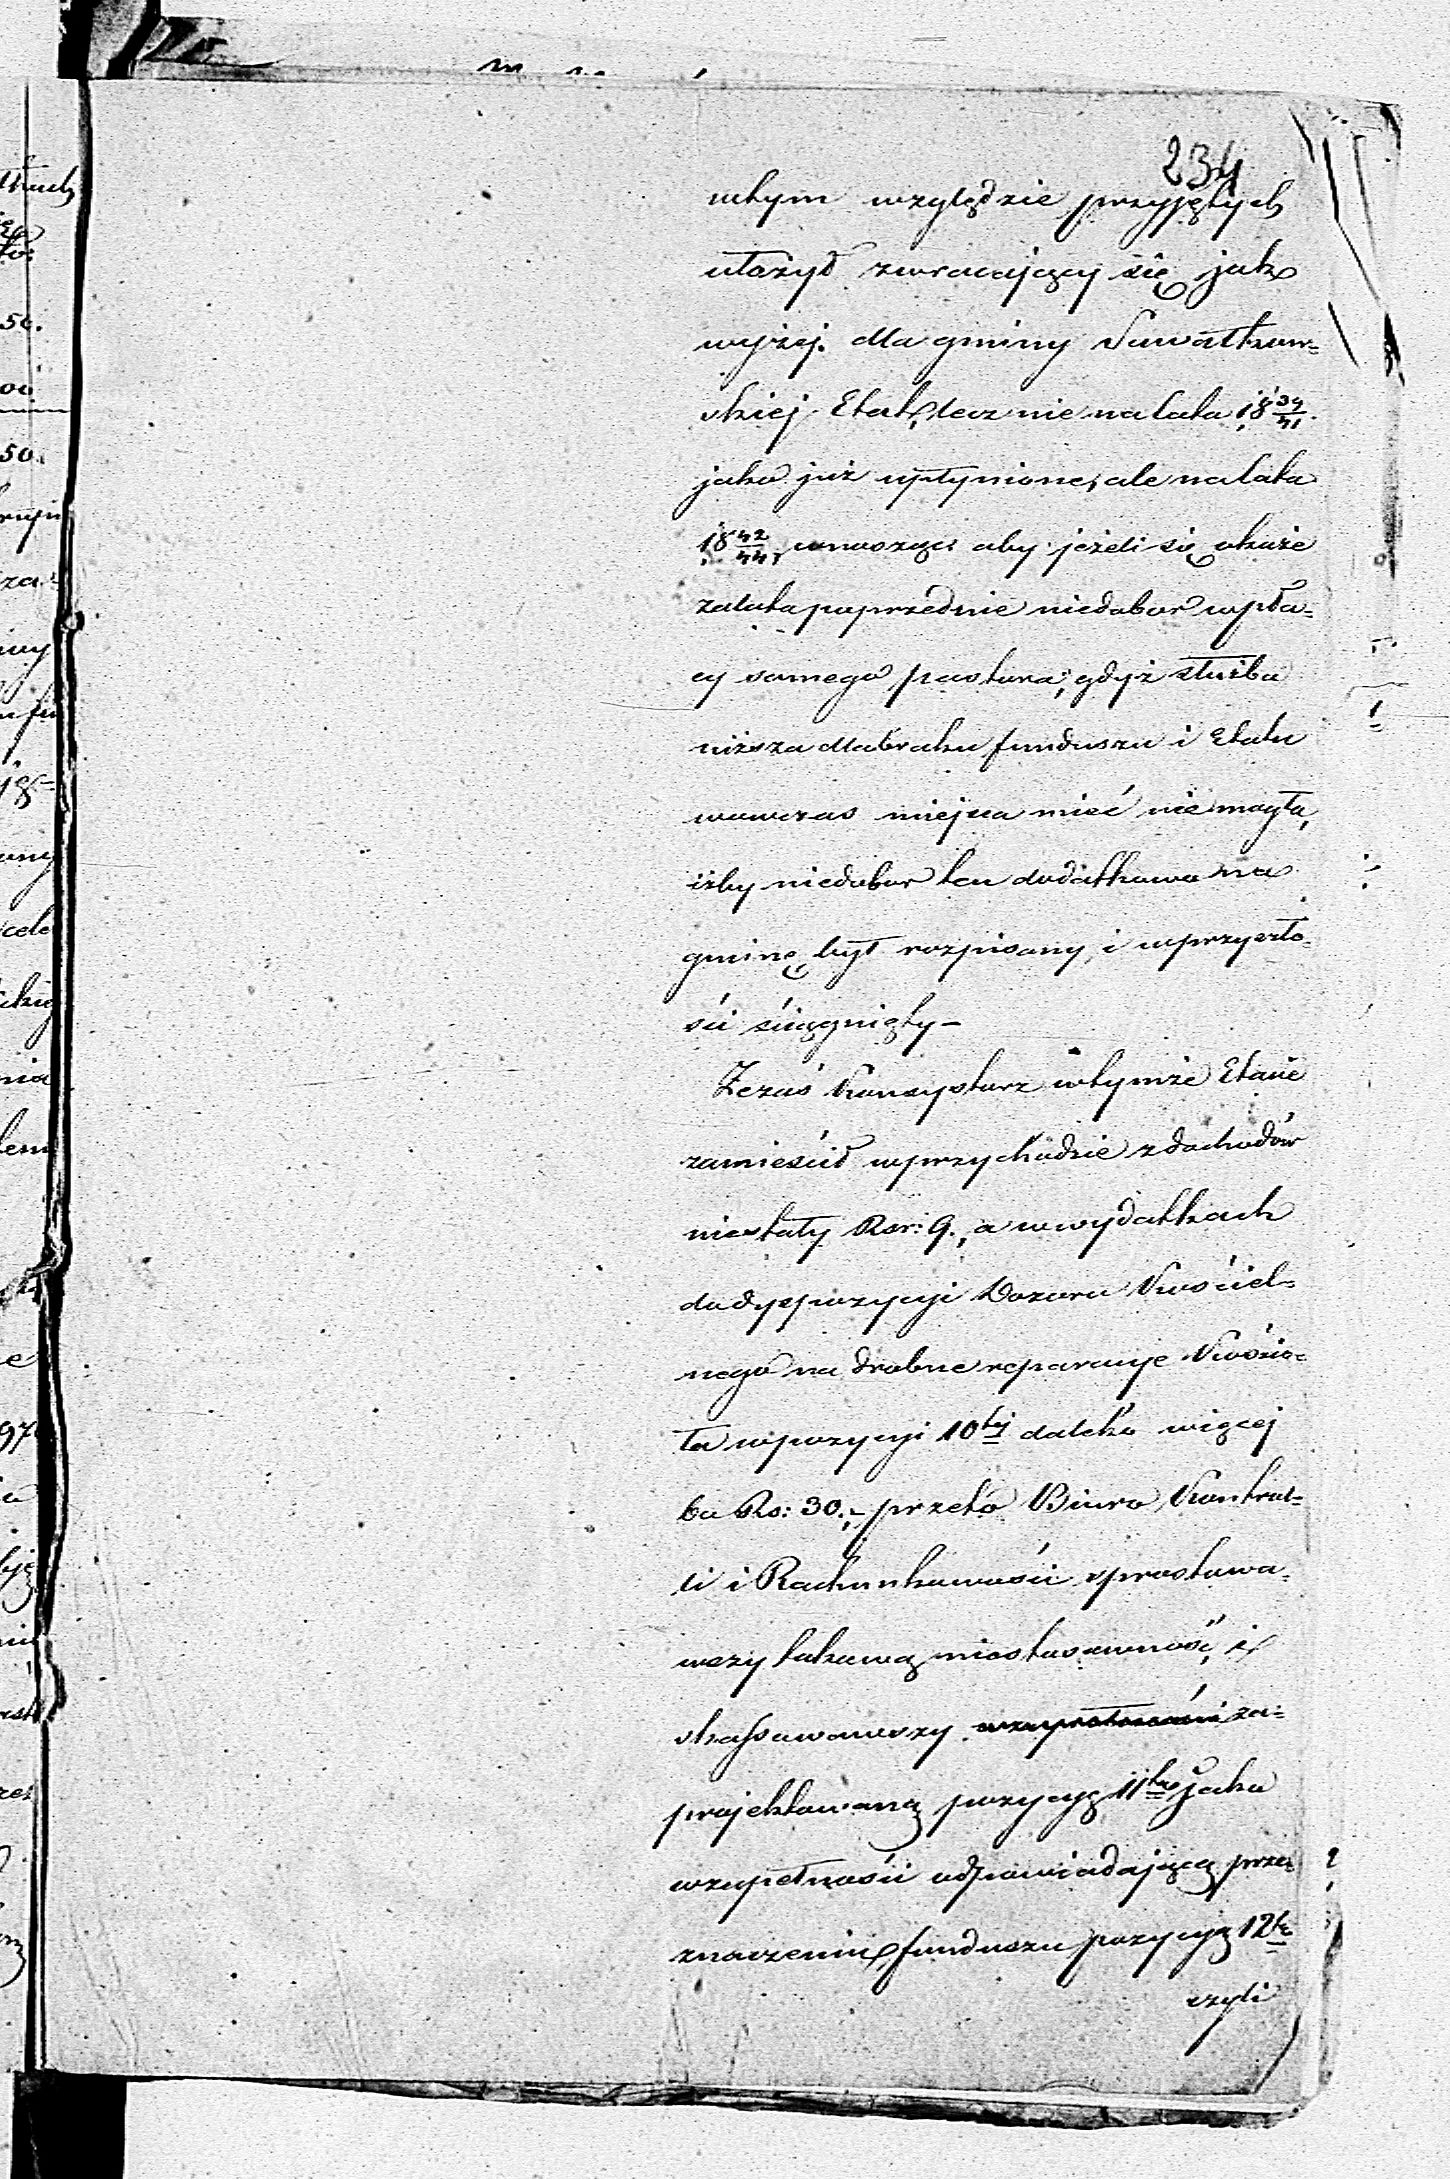 234
wtym względzie przyjętych
ułożył zwracający się jak
wyżej dla gminy Suwałkow=
skiej Etat, lecz nie na lata 18 39/41.
jako już upłynione, ale na lata
18 42/44, wnosząc aby jeżeli się okaże
za lata poprzednie niedobor w pła=
cy samego pastora, gdyż służba
niższa dla braku funduszu i Etatu
wowczas miejsca mieć nie mogła,
iżby niedobor ten dodatkowo na
gminę był rozpisany, i w przyszło=
ści ściągnięty –
Że zaś Konsystorz w tymże Etacie
zamieścił w przychodzie z dochodów
niestały Rsr: 9., a w wydatkach
do dyspozycyi Dozoru Kościel=
nego na drobne reparacyje Kościo=
ła w pozycyi 10tej daleko więcej
bo Rs: 30.– przeto Biuro Kontrol=
li i Rachunkowości sprostowa=
wszy takową niestosowność, i
skassowawszy za=
projektowaną pozycyę 11tą jako
w zupełności odpowiadającą prze=
znaczeniu funduszu pozycyą 12tą
czyli